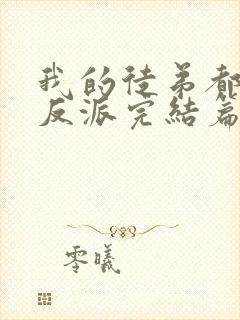 我的徒弟都
反派完结篇
零曦